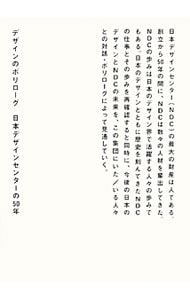 日本デザインセンター(NDC)の最大の財産は人である。
創立から50年の間に、NDCは数々の人材を輩出してきた。
NDCの歩みは日本のデザイン界で活躍する人々の歩みで
もある。日本のデザインとともに歴史を刻んできたNDC
の仕事とその歩みを再確認すると同時に、今後の日本の
デザインとNDCの未来を、この集団にいた/いる人々
との対話・ポリローグによって見通していく。
デザインのポリローグ 日本デザインセンターの50年